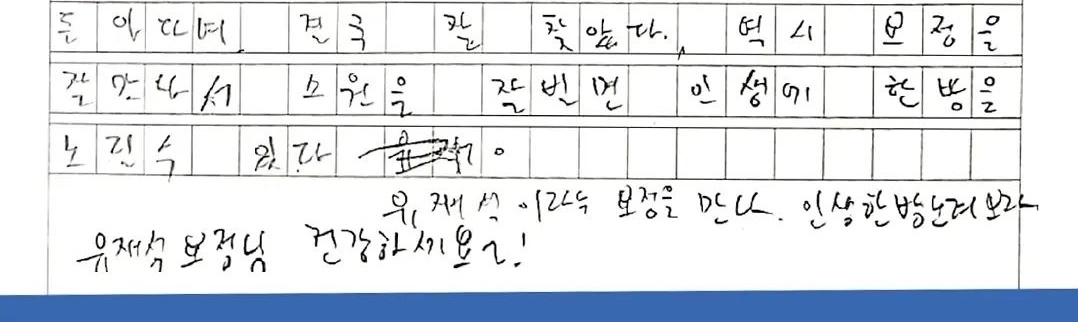 돌아다녀 결국 잘 찾았다. 역시 요정을
잘 만나서 소원을 잘 빌면 인생에 한방을
노릴수 있다.
유재석 이라는 요정을 만나. 인생한방노려보라
유재석 요정님 건강하세요~!